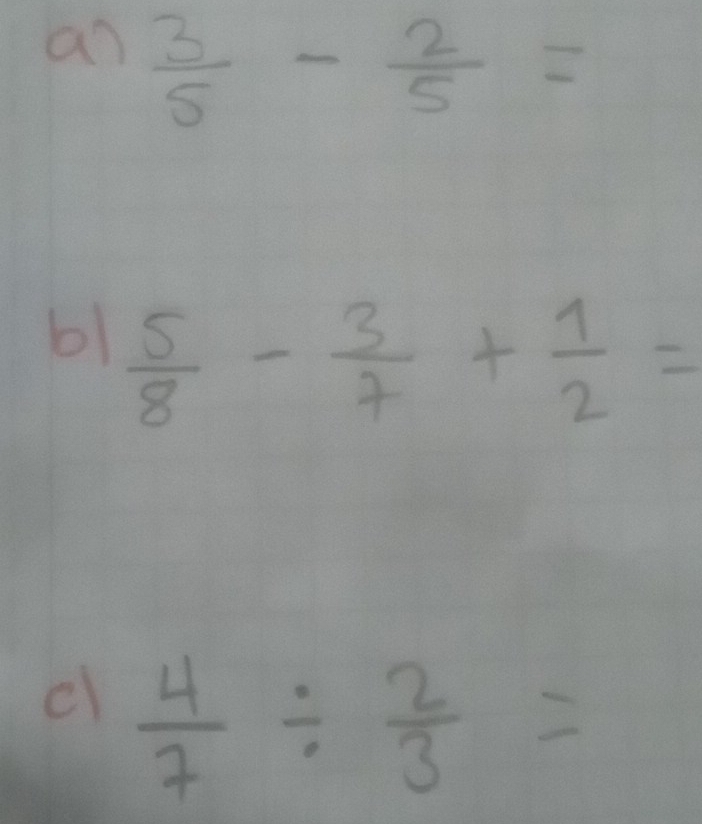 a) 3/5 - 2/5 =
b) 5/8 - 3/7 + 1/2 =
c) 4/7 ÷ 2/3 =